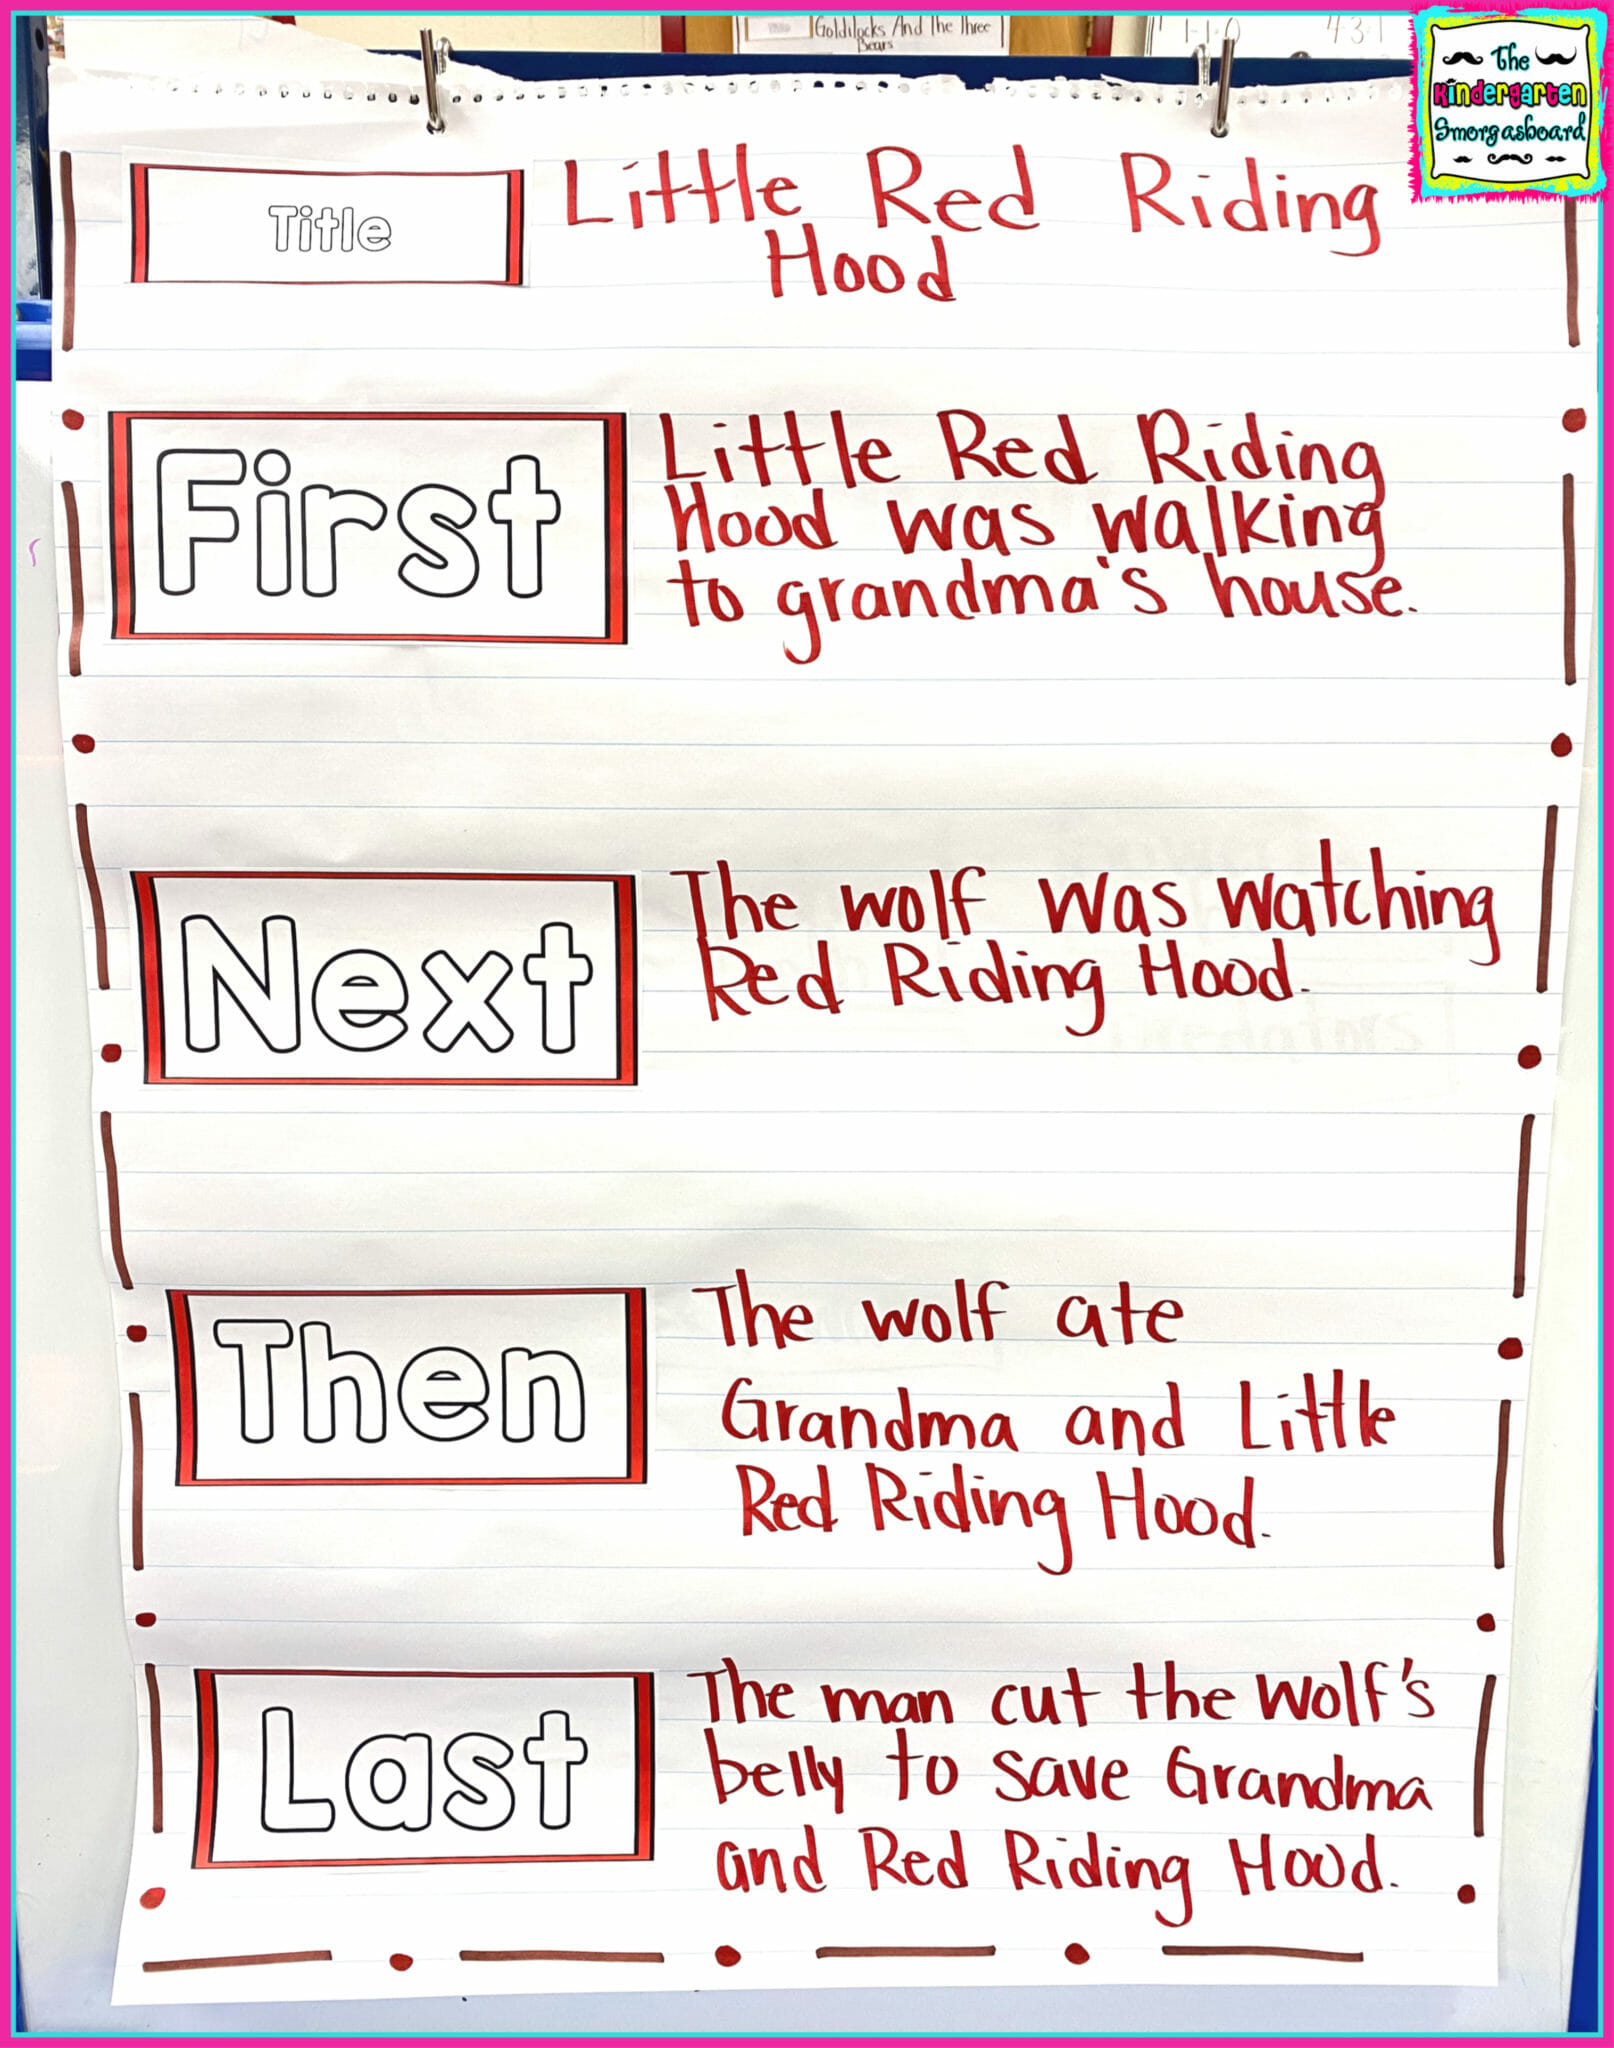 Goldilocks And The Three
Bears
1-1-0
4-3-1
The
Kindergarten
Smorgasboard
Title
Little Red Riding
Hood
First
Little Red Riding
Hood was walking
to grandma's house.
Next
The wolf was watching
Red Riding Hood.
Then
The wolf ate
Grandma and Little
Red Riding Hood.
Last
The man cut the wolf's
belly to save Grandma
and Red Riding Hood.